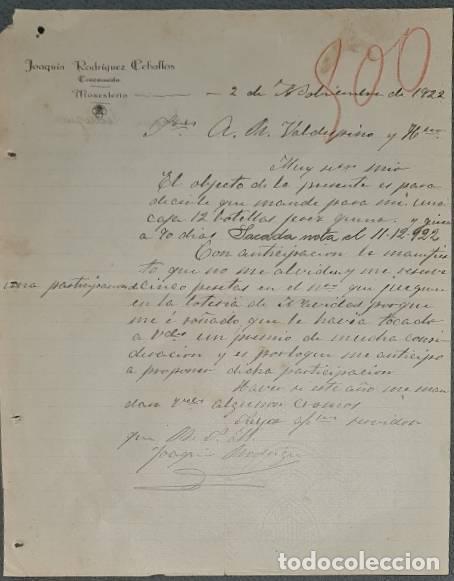 Joaquín Rodríguez Ceballos
Monesterio
800
2 de Nobiembre de 1922
Sres A. R. Valdespino y Hno
Muy sres mio
El objecto de la presente es para
decirle que mande para mi una
caja 12 botellas y gire
a 90 dias Sacada nota el 11-12-922
Con anticipacion le manifies
to que no me olviden y me reserve
una participacion de cinco pesetas en el nro que jueguen
en la loteria de Navidad porque
me é soñado que le havia tocado
a Vdes un premio de mucha consi
deracion y es porloque me anticipo
a proponer dicha participacion
Haver si este año me man
dan Vdes algunos cromos
Suyo afmo servidor
que B. S. M.
Joaquin Rodriguez
todocoleccion.net